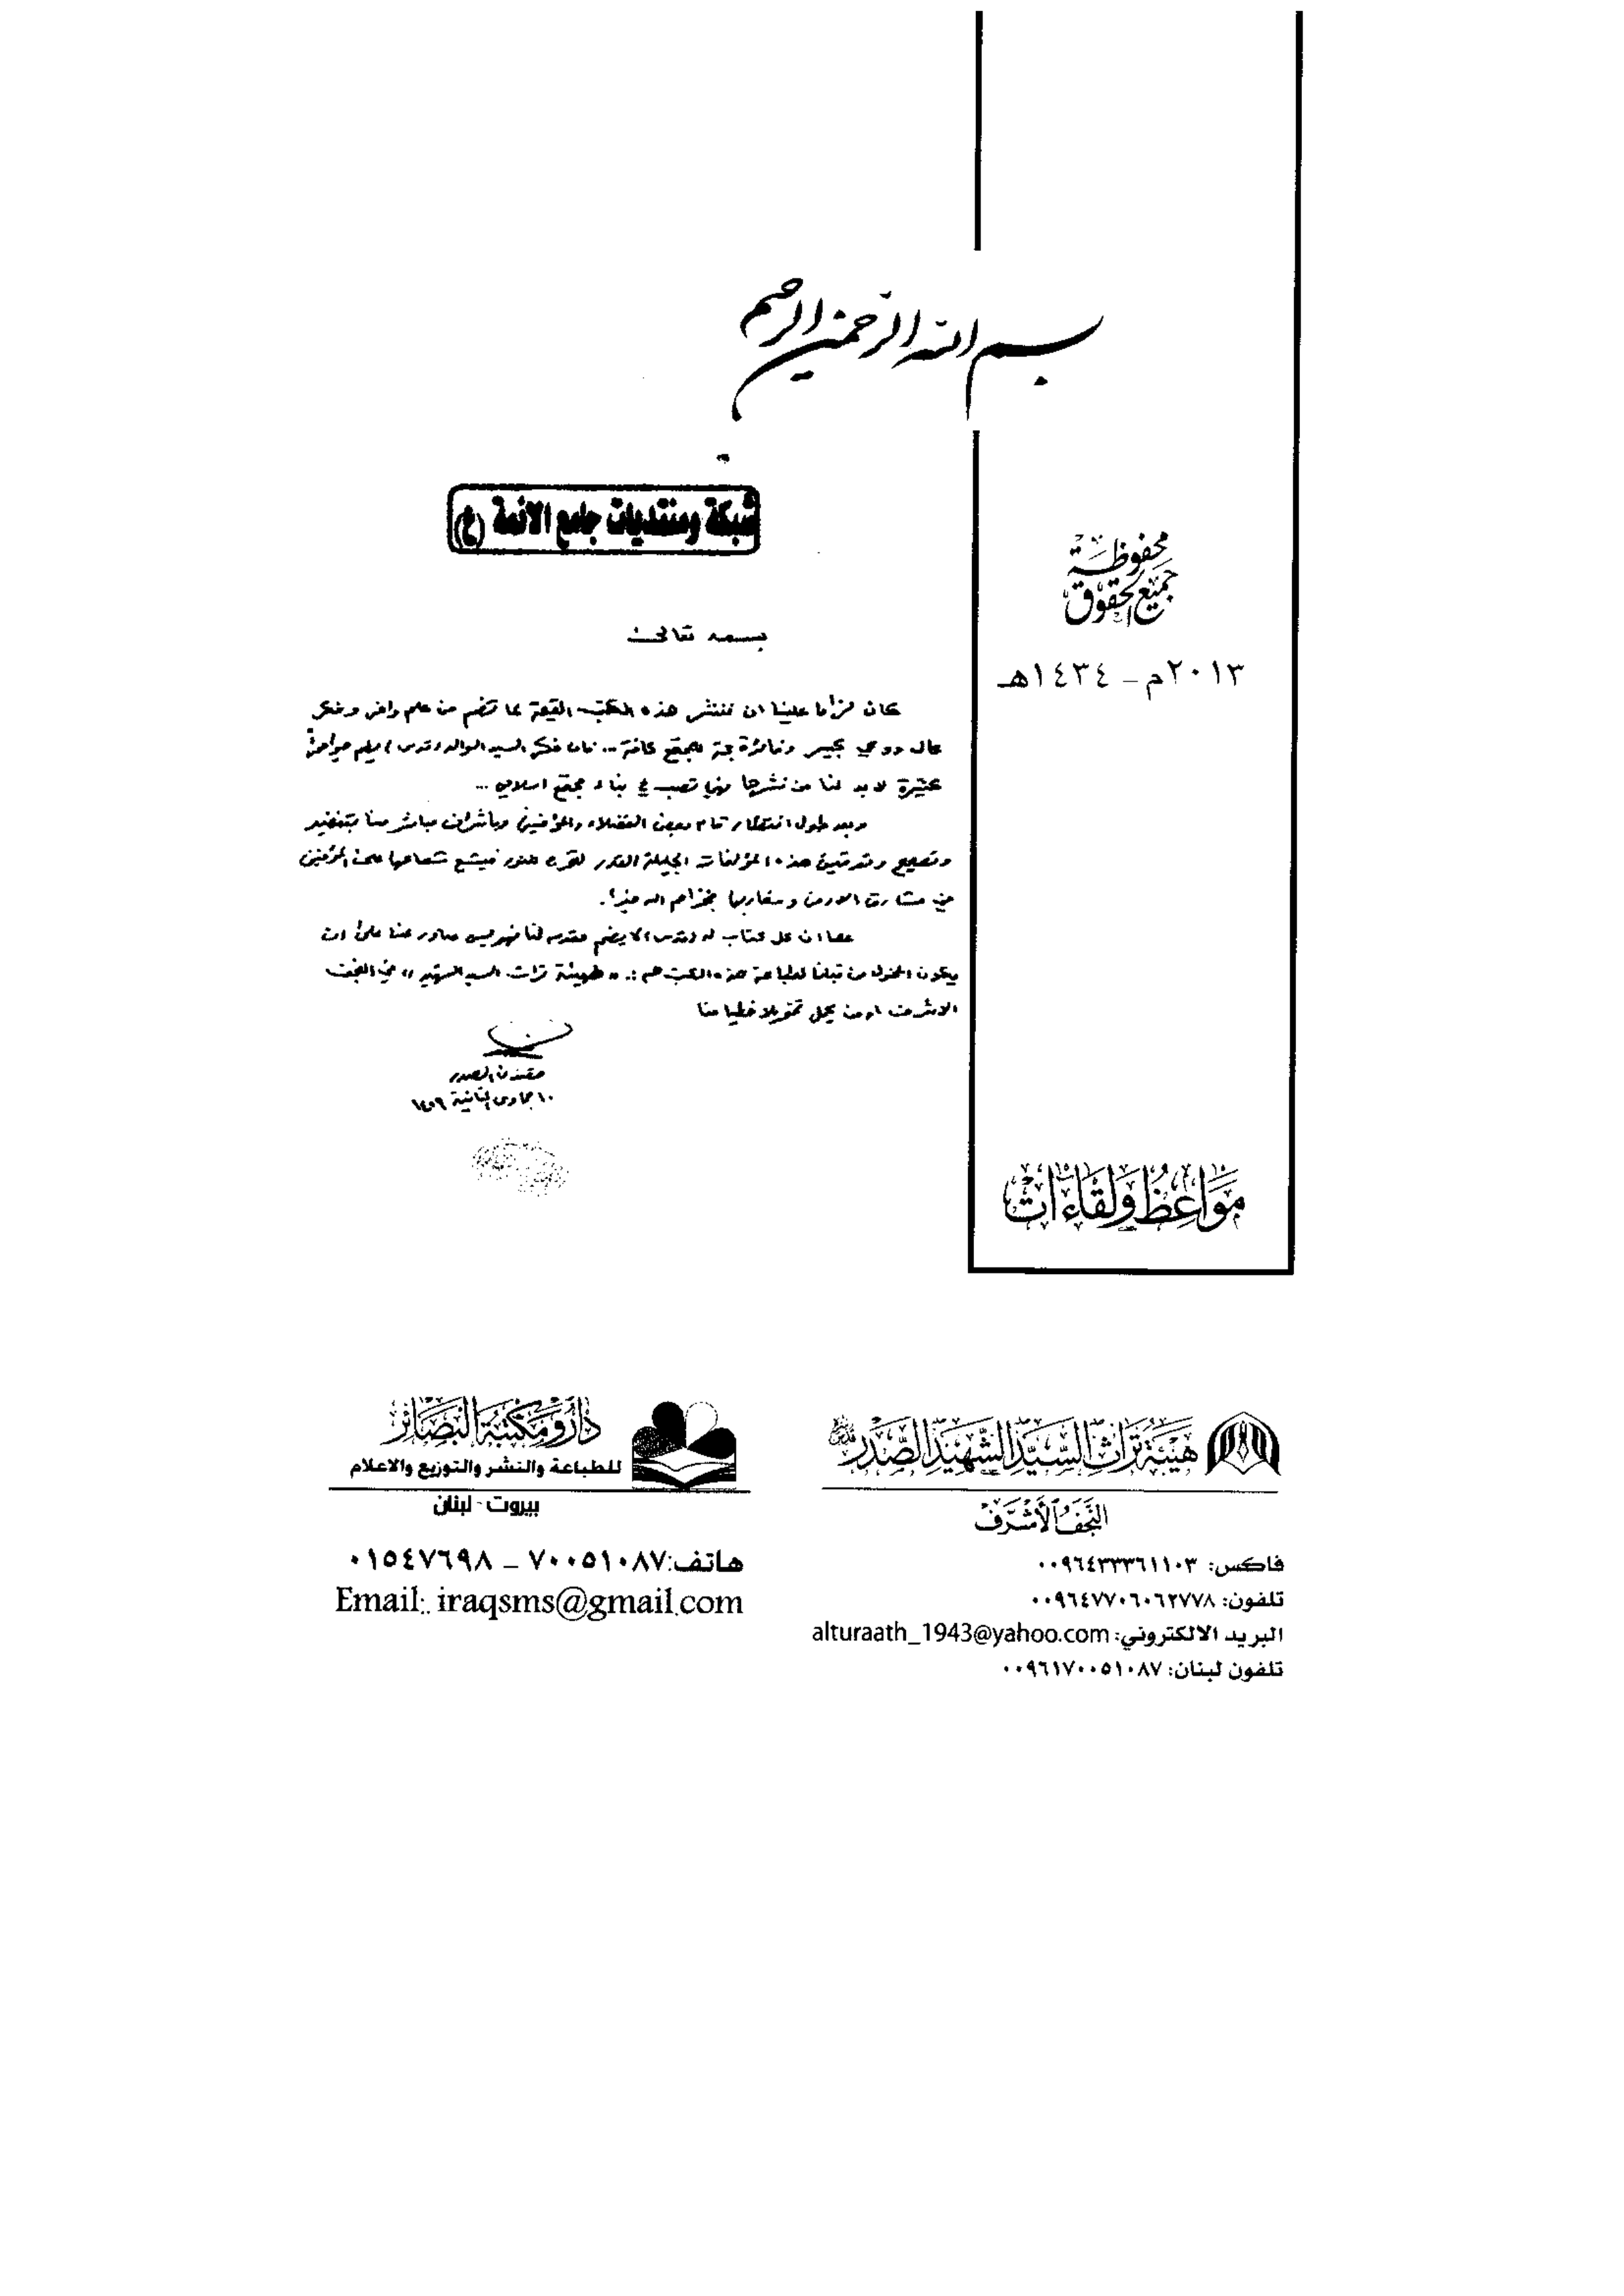 بسم الله الرحمن الرحيم
شبكة ومنتديات جامع الأئمة (ع)
محفوظة
جميع الحقوق
٢٠١٣م – ١٤٣٤هـ
بسمه تعالى
كان لزاما علينا ان ننشر هذه الكتب القيمة لما تضم من علم وافر وفكر
عال ووعي كبير وفائدة جمة للمجتمع كافة ... فان فكر السيد الوالد (قدس)
كثيرة لا بد لنا من نشرها فهي تصب في بناء مجتمع اسلامي ...
وبعد طول انتظار قام بعض الفضلاء والمؤمنين وباشراف مباشر منا بتنضيد
وتصحيح وتدقيق هذه المؤلفات الجليلة القدر لتخرج للنور فيشع شعاعها على المؤمنين
في مشارق الارض ومغاربها فجزاهم الله خيرا.
كما ان كل كتاب له (قدس) لا يضم مقدمة لنا فهو ليس صادر عنا على ان
يكون المخول من قبلنا لطباعة هذه الكتب هم : «هيئة تراث السيد الشهيد» في النجف
الاشرف او من يحمل تخويلا خطيا منا
مقتدى الصدر
١٠ جمادى الثانية
مواعظ ولقاءات
هيئة تراث السيد الشهيد الصدر
النجف الأشرف
فاكس: ٠٠٩٦٤٣٣٣٦١١٠٣
تلفون: ٠٠٩٦٤٧٧٠٦٠٦٢٧٧٨
البريد الالكتروني: alturaath_1943@yahoo.com
تلفون لبنان: ٠٠٩٦١٧٠٠٥١٠٨٧
دار ومكتبة البصائر
للطباعة والنشر والتوزيع والاعلام
بيروت - لبنان
هاتف: ٧٠٠٥١٠٨٧ – ٠١٥٤٧٦٩٨
Email:. iraqsms@gmail.com